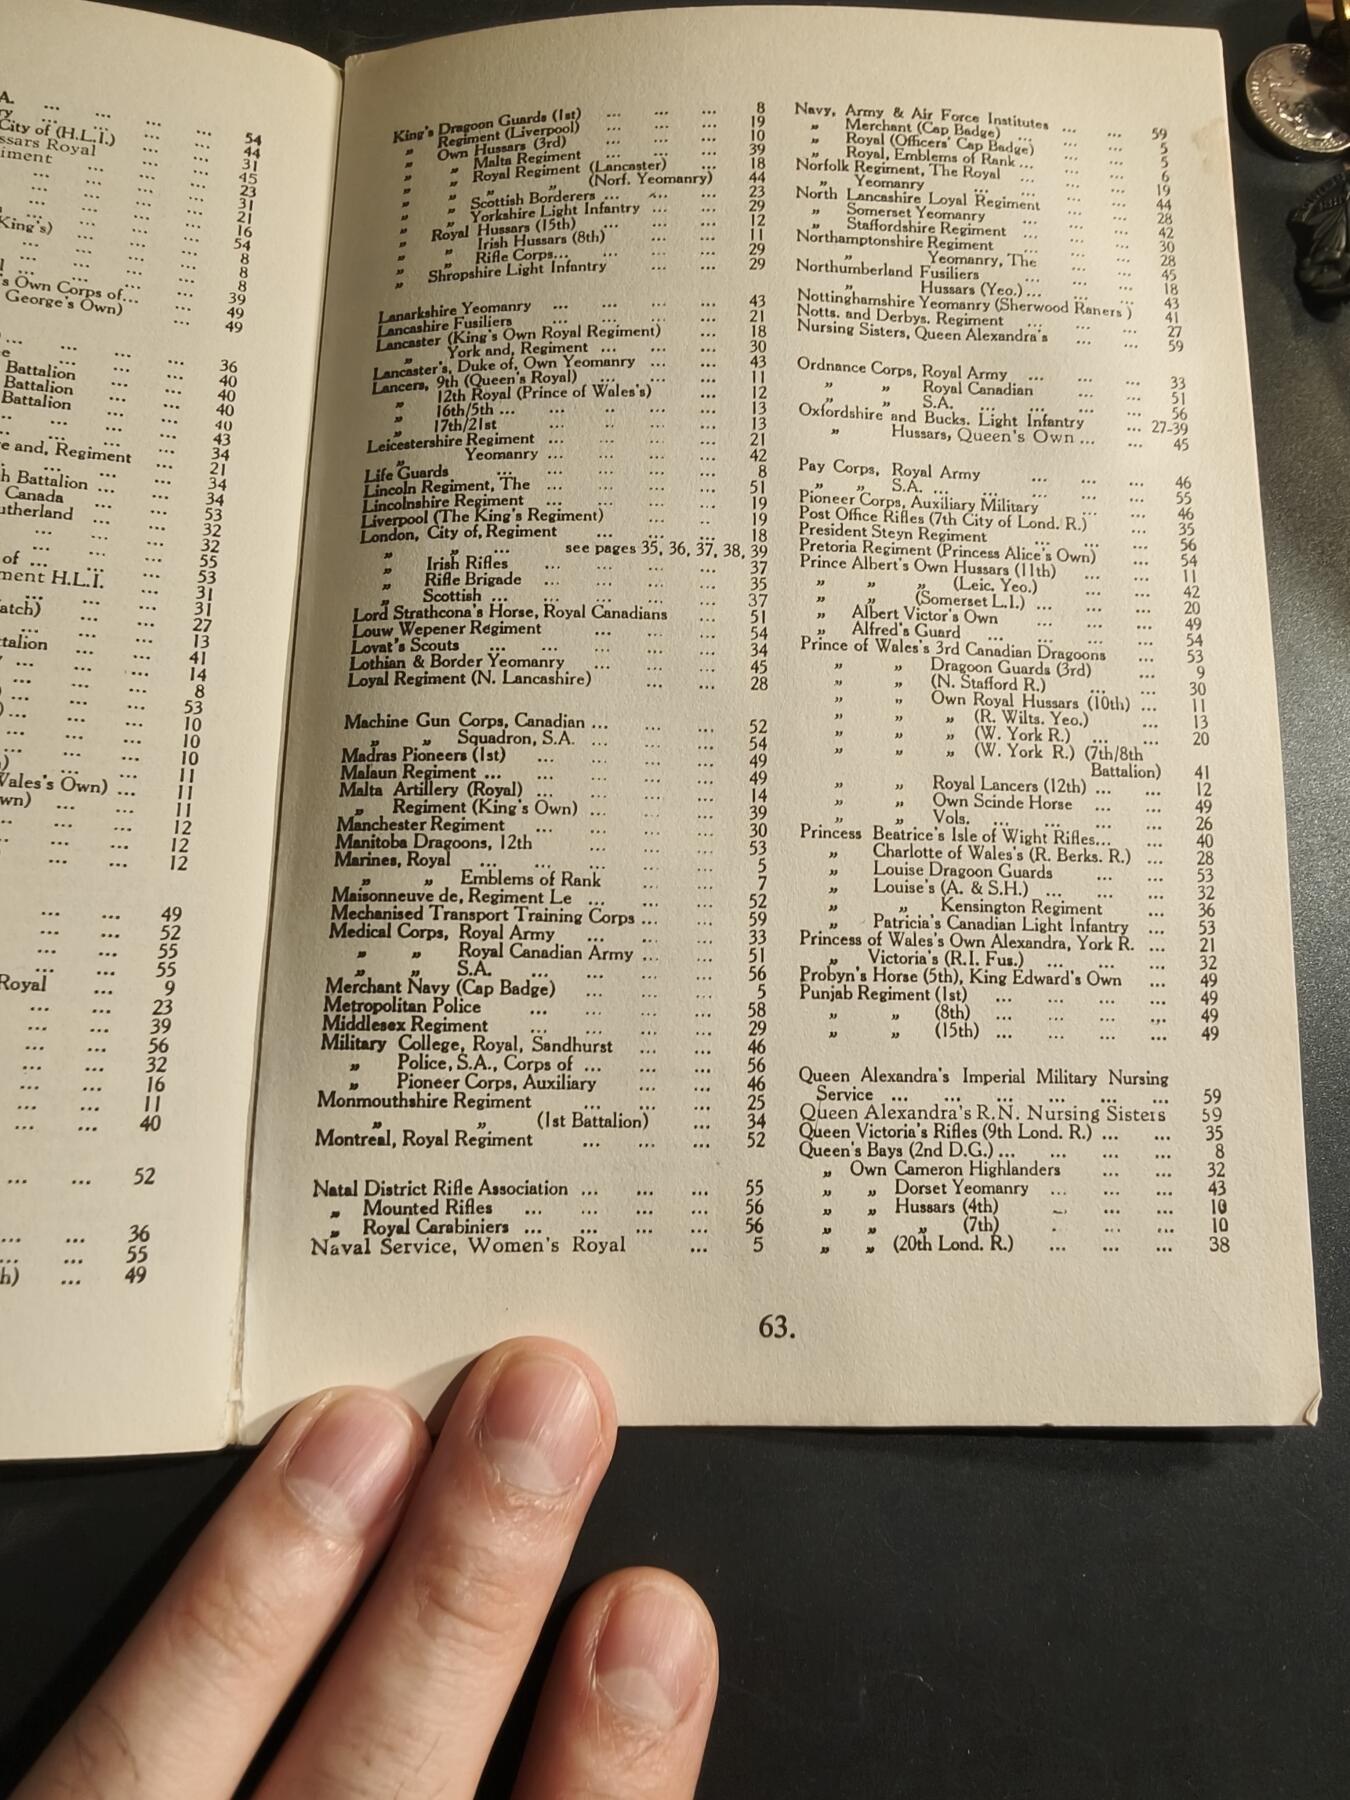 A. ... ... ...
City of (H.L.I.) ... ... 54
ssars Royal ... 44
iment ... ... 31
... ... ... 45
... ... ... 23
... ... ... 31
... ... ... 21
King's) ... ... 16
... ... ... 54
... ... ... 8
... ... ... 8
's Own Corps of... ... 8
George's Own) ... 39
... 49
49
... ... ... 36
Battalion ... ... 40
Battalion ... ... 40
Battalion ... ... 40
... ... ... 40
... ... ... 43
e and, Regiment ... 34
... ... ... 21
h Battalion ... ... 34
Canada ... ... 34
utherland ... ... 53
... ... 32
... ... 32
of ... ... ... 55
ment H.L.I. ... 53
... ... ... 31
atch) ... ... 31
... ... ... 27
ttalion ... ... 13
... ... ... 41
... ... ... 14
... ... ... 8
)... ... ... 53
... ... ... 10
... ... ... 10
) ... ... ... 10
Wales's Own) ... 11
wn) ... ... 11
... ... ... 11
... ... ... 12
... ... ... 12
... ... ... 12
... ... 49
... ... 52
... ... 55
... ... 55
Royal ... 9
... ... 23
... ... 39
... ... 56
... ... 32
... ... 16
... ... 11
... ... 40
... ... ... 52
... ... ... 36
... ... ... 55
h) ... 49
King's Dragoon Guards (1st) ... ... ... 8
„ Regiment (Liverpool) ... ... ... 19
„ Own Hussars (3rd) ... ... ... 10
„ „ Malta Regiment ... ... ... 39
„ „ Royal Regiment (Lancaster) ... 18
„ „ „ „ (Norf. Yeomanry) 44
„ „ Scottish Borderers ... ... ... 23
„ „ Yorkshire Light Infantry ... ... 29
„ Royal Hussars (15th) ... ... ... 12
„ „ Irish Hussars (8th) ... ... 11
„ „ Rifle Corps... ... ... ... 29
„ Shropshire Light Infantry ... ... 29
Lanarkshire Yeomanry ... ... ... ... 43
Lancashire Fusiliers ... ... ... ... 21
Lancaster (King's Own Royal Regiment) ... 18
„ York and, Regiment ... ... ... 30
Lancaster's, Duke of, Own Yeomanry ... ... 43
Lancers, 9th (Queen's Royal) ... ... ... 11
„ 12th Royal (Prince of Wales's) ... 12
„ 16th/5th ... ... ... ... 13
„ 17th/21st ... ... ... ... 13
Leicestershire Regiment ... ... ... ... 21
„ Yeomanry ... ... ... ... 42
Life Guards ... ... ... ... ... 8
Lincoln Regiment, The ... ... ... ... 51
Lincolnshire Regiment ... ... ... ... 19
Liverpool (The King's Regiment) ... ... 19
London, City of, Regiment ... ... ... 18
„ „ ... see pages 35, 36, 37, 38, 39
„ Irish Rifles ... ... ... ... 37
„ Rifle Brigade ... ... ... ... 35
„ Scottish ... ... ... ... ... 37
Lord Strathcona's Horse, Royal Canadians ... 51
Louw Wepener Regiment ... ... ... 54
Lovat's Scouts ... ... ... ... ... 34
Lothian & Border Yeomanry ... ... ... 45
Loyal Regiment (N. Lancashire) ... ... 28
Machine Gun Corps, Canadian ... ... ... 52
„ „ Squadron, S.A. ... ... ... 54
Madras Pioneers (1st) ... ... ... ... 49
Malaun Regiment ... ... ... ... ... 49
Malta Artillery (Royal) ... ... ... ... 14
„ Regiment (King's Own) ... ... ... 39
Manchester Regiment ... ... ... ... 30
Manitoba Dragoons, 12th ... ... ... 53
Marines, Royal ... ... ... ... ... 5
„ „ Emblems of Rank ... ... 7
Maisonneuve de, Regiment Le ... ... ... 52
Mechanised Transport Training Corps ... ... 59
Medical Corps, Royal Army ... ... ... 33
„ „ Royal Canadian Army ... ... 51
„ „ S.A. ... ... ... ... 56
Merchant Navy (Cap Badge) ... ... ... 5
Metropolitan Police ... ... ... ... 58
Middlesex Regiment ... ... ... ... 29
Military College, Royal, Sandhurst ... ... 46
„ Police, S.A., Corps of ... ... ... 56
„ Pioneer Corps, Auxiliary ... ... 46
Monmouthshire Regiment ... ... ... 25
„ „ (1st Battalion) ... 34
Montreal, Royal Regiment ... ... ... 52
Natal District Rifle Association ... ... ... 55
„ Mounted Rifles ... ... ... 56
„ Royal Carabiniers ... ... ... ... 56
Naval Service, Women's Royal ... 5
Navy, Army & Air Force Institutes ... ... 59
„ Merchant (Cap Badge) ... ... ... 5
„ Royal (Officers' Cap Badge) ... ... 5
„ Royal, Emblems of Rank ... ... ... 6
Norfolk Regiment, The Royal ... ... ... 19
„ Yeomanry ... ... ... ... 44
North Lancashire Loyal Regiment ... ... 28
„ Somerset Yeomanry ... ... ... 42
„ Staffordshire Regiment ... ... ... 30
Northamptonshire Regiment ... ... ... 28
„ Yeomanry, The ... ... 45
Northumberland Fusiliers ... ... ... 18
„ Hussars (Yeo.) ... ... ... 43
Nottinghamshire Yeomanry (Sherwood Raners ) 41
Notts. and Derbys. Regiment ... ... ... 27
Nursing Sisters, Queen Alexandra's ... ... 59
Ordnance Corps, Royal Army ... ... ... 33
„ „ Royal Canadian ... ... 51
„ „ S.A. ... ... ... ... 56
Oxfordshire and Bucks. Light Infantry ... 27-39
„ Hussars, Queen's Own ... ... 45
Pay Corps, Royal Army ... ... ... 46
„ „ S.A. ... ... ... ... ... 55
Pioneer Corps, Auxiliary Military ... ... 46
Post Office Rifles (7th City of Lond. R.) ... 35
President Steyn Regiment ... ... ... 56
Pretoria Regiment (Princess Alice's Own) ... 54
Prince Albert's Own Hussars (11th) ... ... 11
„ „ „ (Leic. Yeo.) ... ... 42
„ „ (Somerset L.I.) ... ... 20
„ Albert Victor's Own ... ... ... 49
„ Alfred's Guard ... ... ... ... 54
Prince of Wales's 3rd Canadian Dragoons ... 53
„ „ Dragoon Guards (3rd) ... 9
„ „ (N. Stafford R.) ... ... 30
„ „ Own Royal Hussars (10th) ... 11
„ „ „ (R. Wilts. Yeo.) ... 13
„ „ „ (W. York R.) ... ... 20
„ „ „ (W. York R.) (7th/8th
Battalion) 41
„ „ Royal Lancers (12th) ... ... 12
„ „ Own Scinde Horse ... ... 49
„ „ Vols. ... ... ... ... 26
Princess Beatrice's Isle of Wight Rifles... ... 40
„ Charlotte of Wales's (R. Berks. R.) ... 28
„ Louise Dragoon Guards ... ... 53
„ Louise's (A. & S.H.) ... ... ... 32
„ „ Kensington Regiment ... 36
„ Patricia's Canadian Light Infantry ... 53
Princess of Wales's Own Alexandra, York R. ... 21
„ Victoria's (R.I. Fus.) ... ... ... 32
Probyn's Horse (5th), King Edward's Own ... 49
Punjab Regiment (1st) ... ... ... ... 49
„ „ (8th) ... ... ... ... 49
„ „ (15th) ... ... ... ... 49
Queen Alexandra's Imperial Military Nursing
Service ... ... ... ... ... ... 59
Queen Alexandra's R.N. Nursing Sisters 59
Queen Victoria's Rifles (9th Lond. R.) ... ... 35
Queen's Bays (2nd D.G.) ... ... ... ... 8
„ Own Cameron Highlanders ... ... 32
„ „ Dorset Yeomanry ... ... ... 43
„ „ Hussars (4th) ... ... ... 10
„ „ „ (7th) ... ... ... 10
„ „ (20th Lond. R.) ... ... ... 38
63.